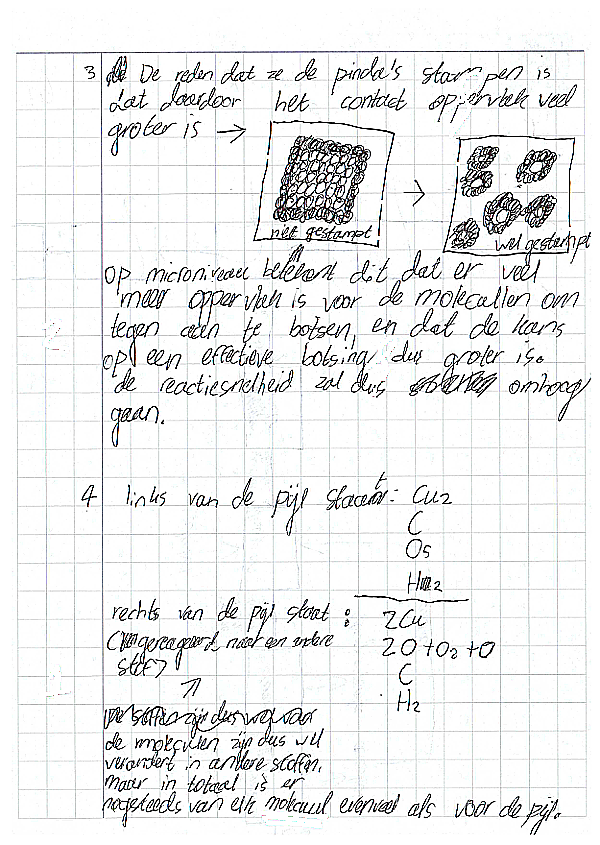 3 De reden dat ze de pinda's stampen is
dat daardoor het contact oppervlak veel
groter is →
niet gestampt
wel gestampt
op microniveau betekent dit dat er veel
meer oppervlak is voor de moleculen om
tegen aan te botsen, en dat de kans
op een effectieve botsing dus groter is.
de reactiesnelheid zal dus omhoog
gaan.
4 links van de pijl staat: Cu2
C
O5
H2
rechts van de pijl staat: 2Cu
gereageerd naar een andere 2O + O2 + O
stof) C
H2
de moleculen zijn dus wel
verandert in andere stoffen.
maar in totaal is er
nogsteeds van elk molecuul evenveel als voor de pijl.